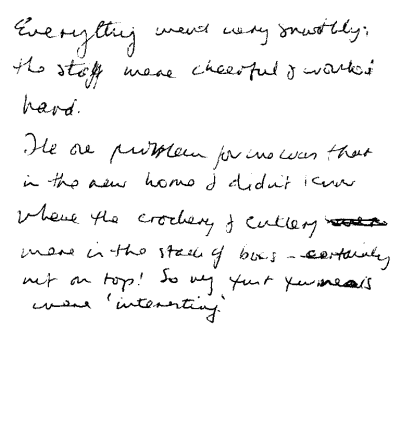 Everything went very smoothly;
the staff were cheerful & worked
hard.
The one problem for me was that
in the new home I didn't know
where the crockery & cutlery
were in the stack of boxes - certainly
not on top! So my first few meals
were 'interesting'